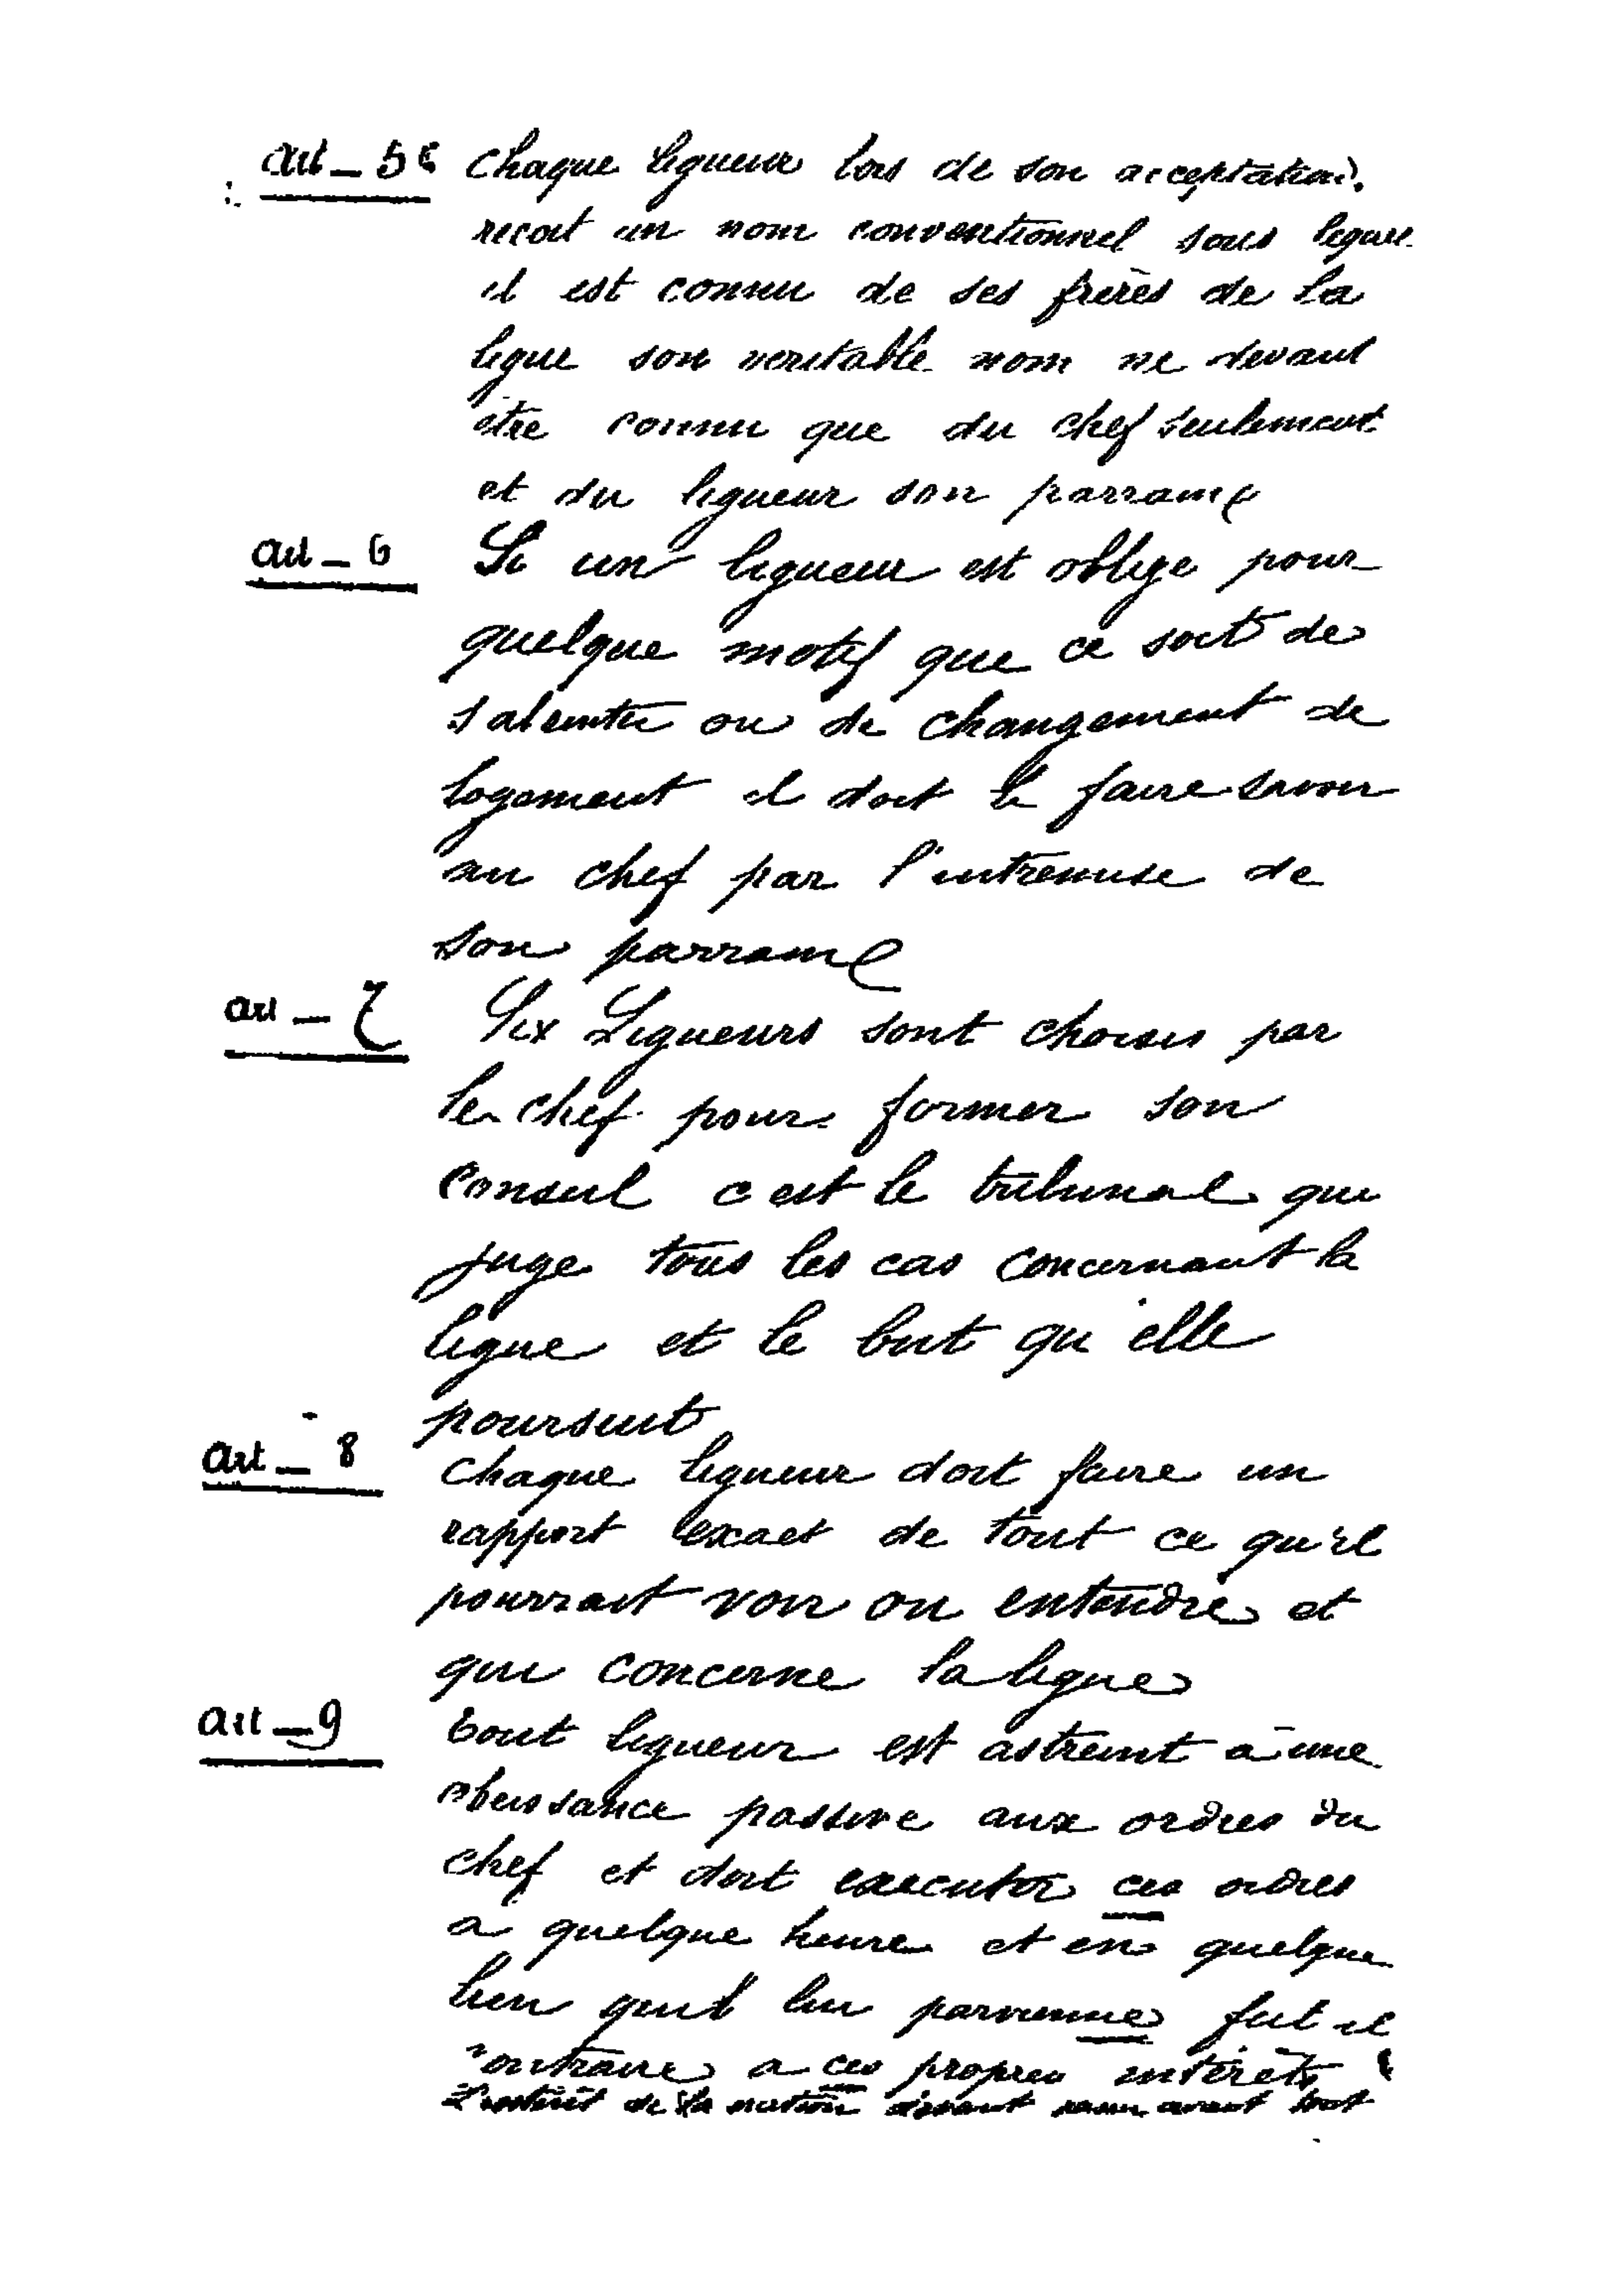 Art - 5e Chaque ligueur lors de son acceptation.
recoit un nom conventionnel sous lequel
il est connu de ses frères de la
ligue son veritable nom ne devant
etre connu que du chef seulement
et du ligueur son parrain
art - 6 Si un ligueur est oblige pour
quelque motif que ce soit de
s absenter ou de changement de
logement il doit le faire savoir
au chef par l'entremise de
son parrain
art - 7 Six Ligueurs sont choisis par
le chef pour former son
Conseil c est le tribunal qui
juge tous les cas concernant la
ligue et le but qu'elle
poursuit
Art - 8 Chaque ligueur doit faire un
rapport exact de tout ce qu'il
pourrait voir ou entendre et
qui concerne la ligue
Art - 9 tout ligueur est astreint à une
obeissance passive aux ordres du
chef et doit executer ces ordres
a quelque heure et en quelque
lieu qu'il lui parvienne fut il
contraire a ces propres intérêts
L'intérêt de la nation devant avant tout